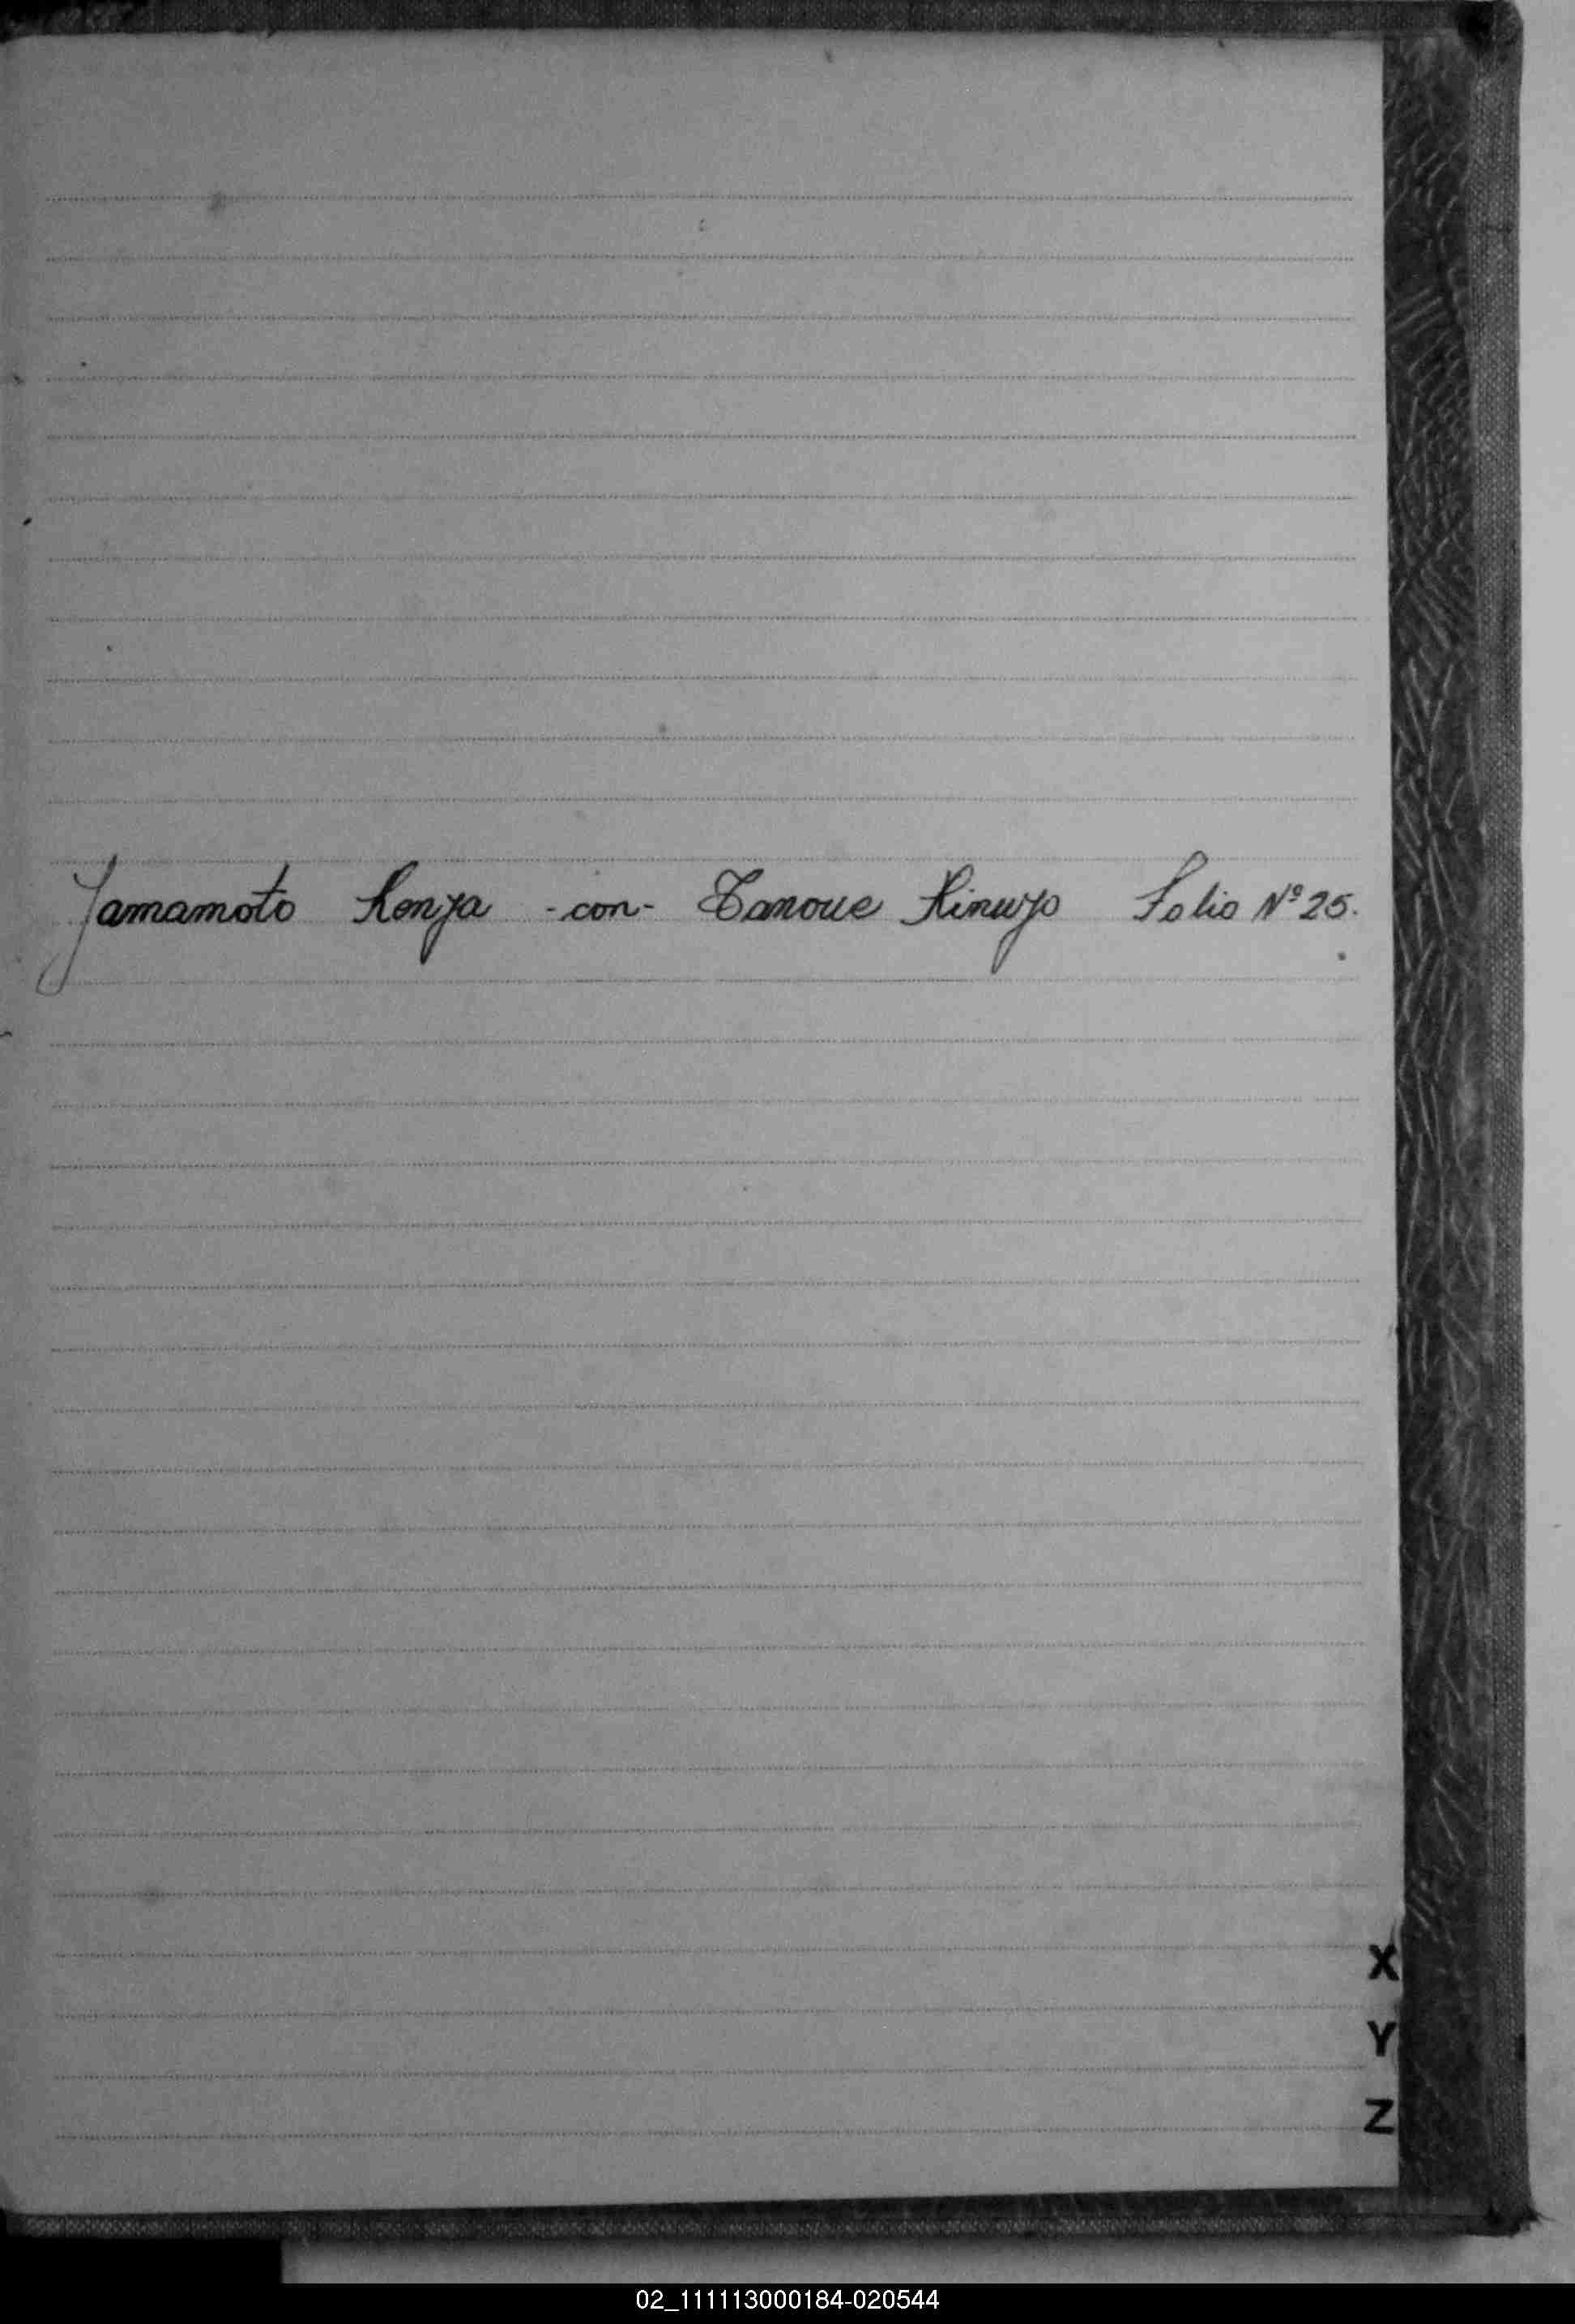 Yamamoto Kenya -con- Tanoue Kinuyo Folio Nº 25.
X
Y
Z
02_111113000184-020544